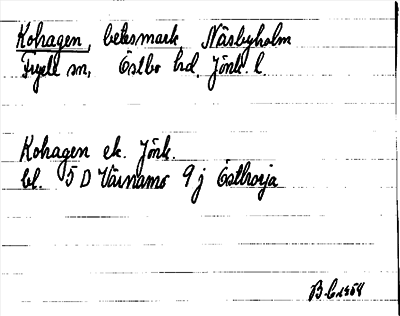 Kohagen, betesmark, Näsbyholm
Fryele sn, Östbo hd, Jönk. l.
Kohagen ek. Jönk.
bl. 5 D Värnamo 9 j Östhorja